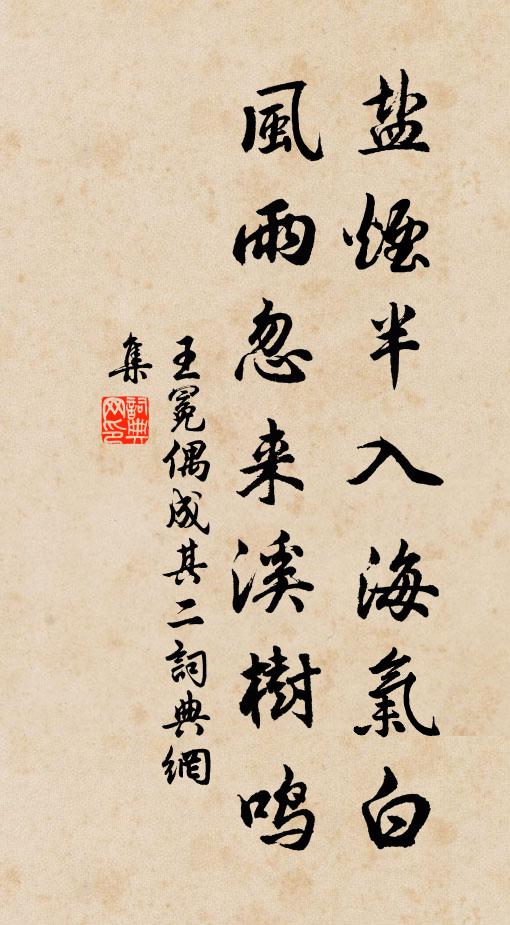 盐煙半入海氣白
風雨忽来溪樹鸣
王冕偶成其二詞典網
集
詞典
网印